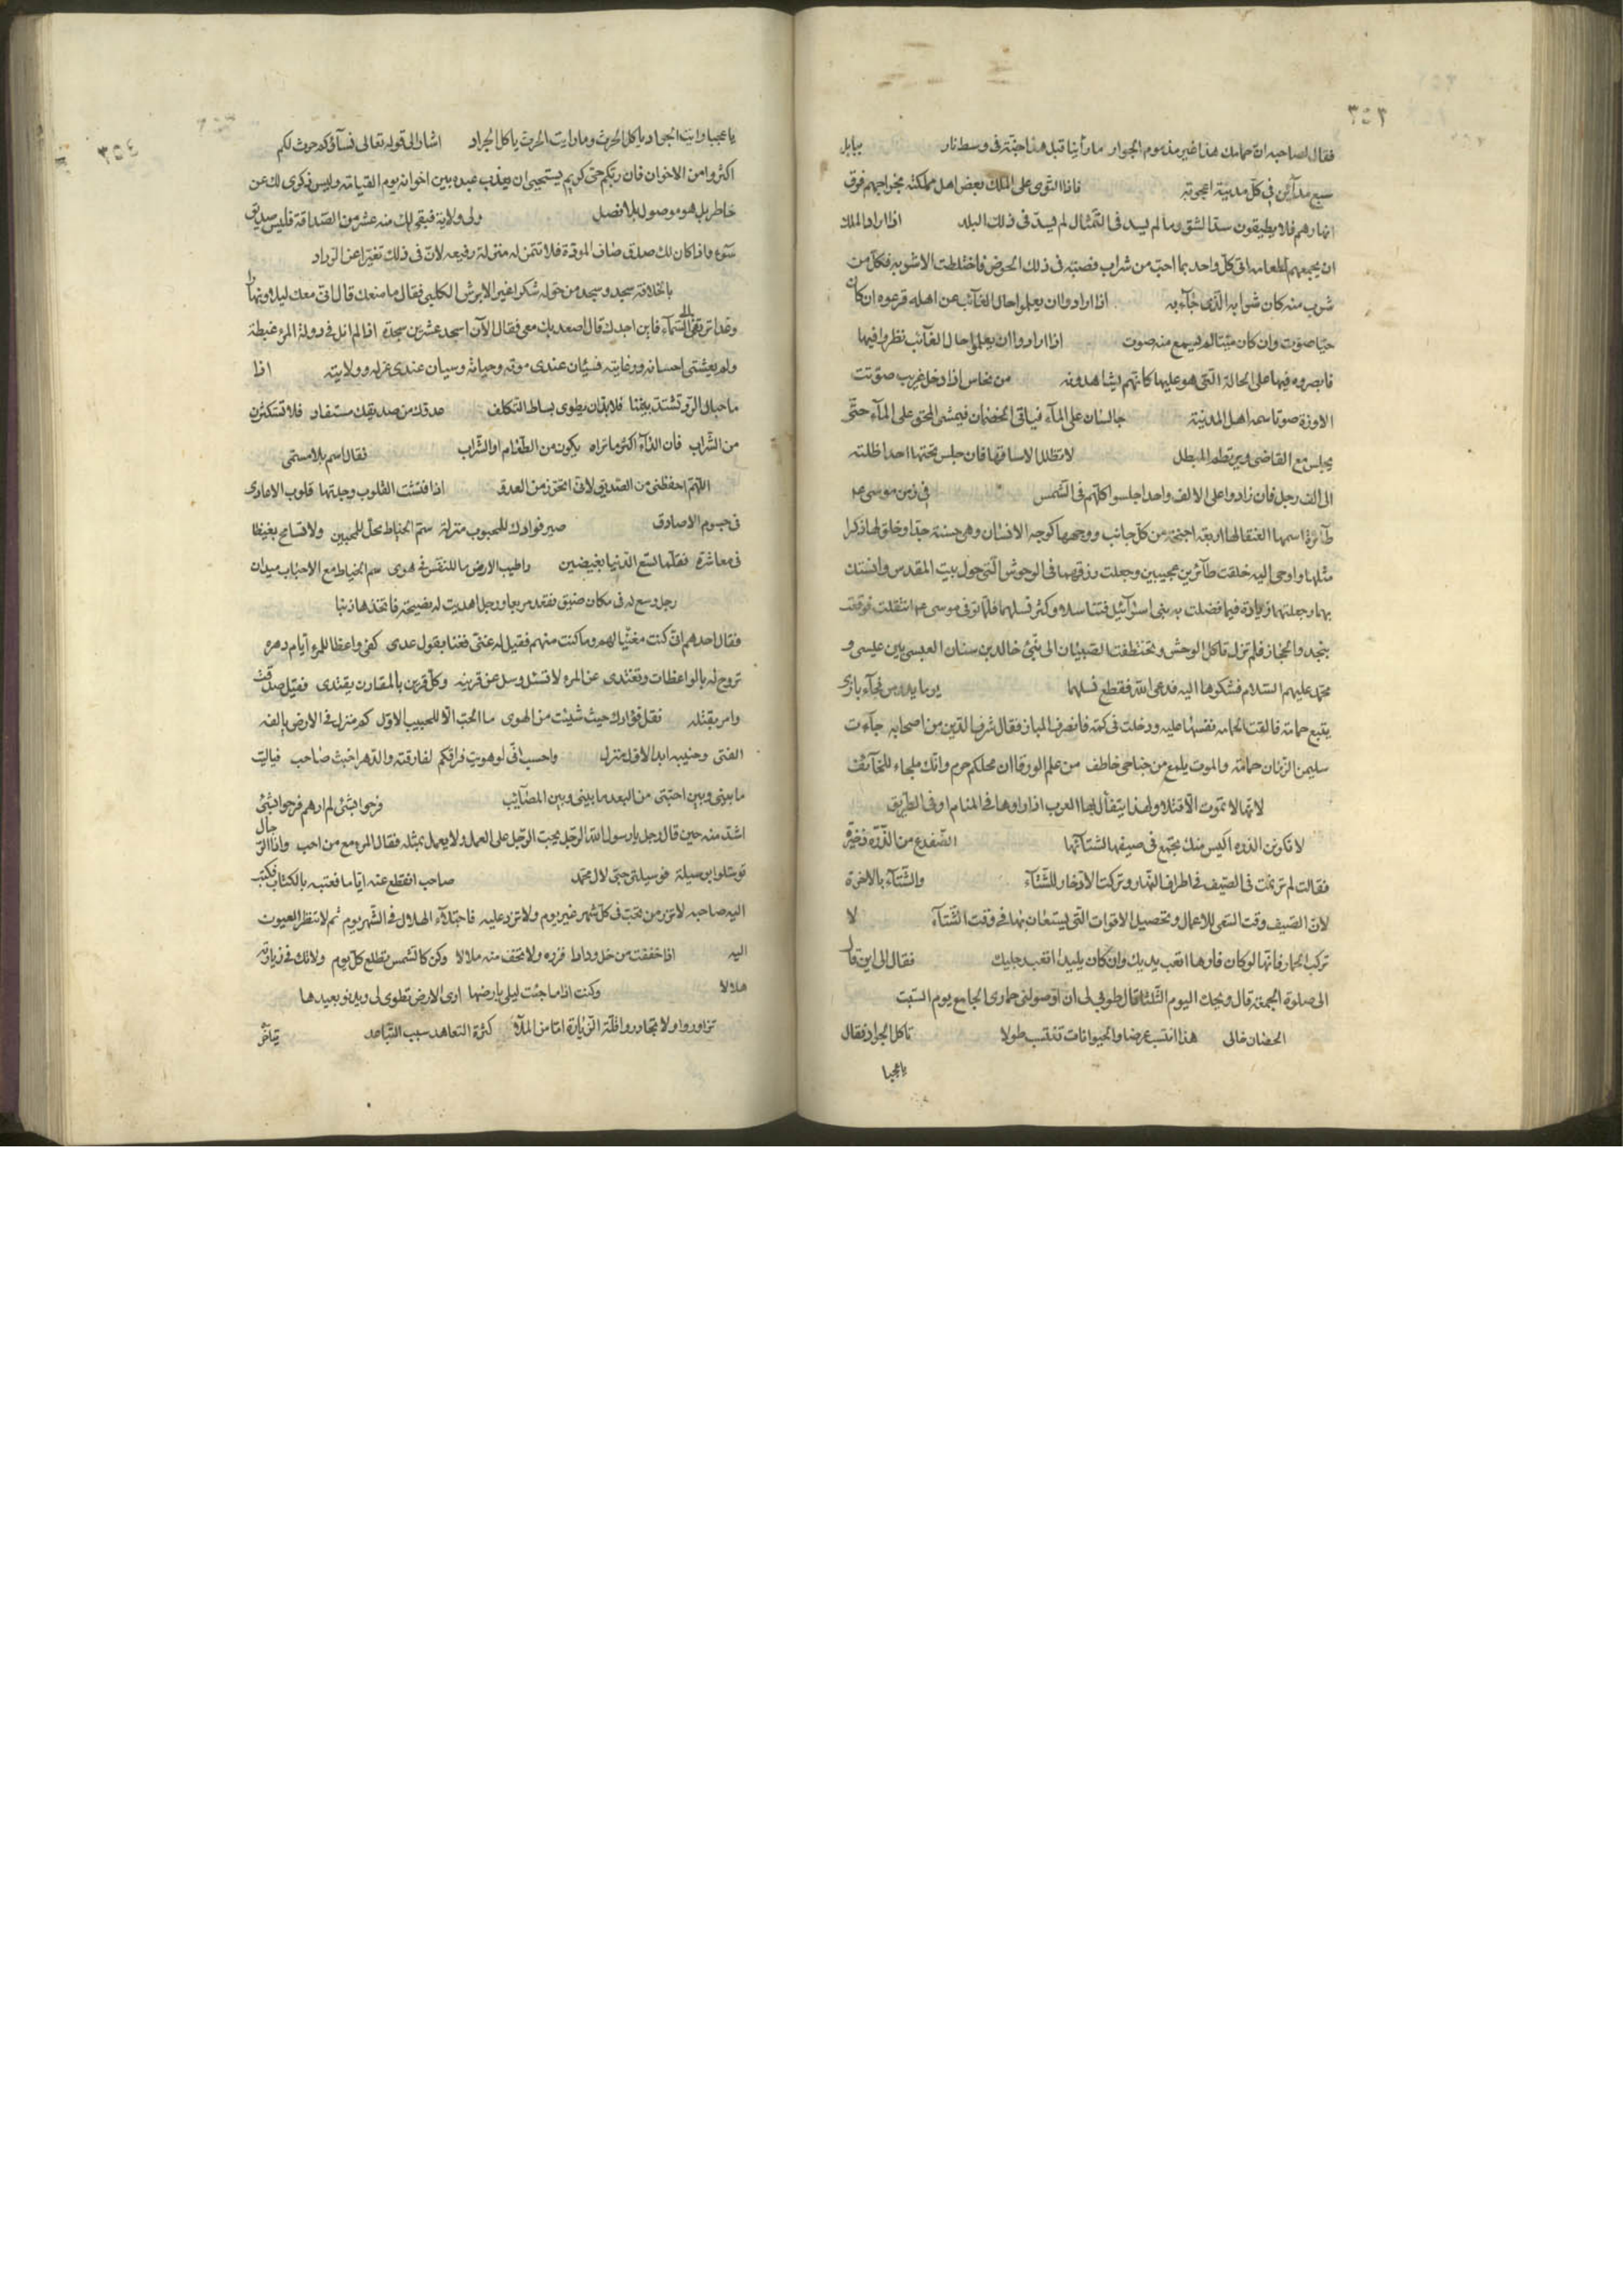 ٣٥٣
فقال لصاحبه ان حمامك هذا غير مذموم الجوار ما رأينا قبل هذا جنة فى وسط نار ببابل
سبع مدآئن فى كل مدينة اعجوبة فاذا التوى على الملك بعض اهل مملكته بخراجهم فرق
انهارهم فلا يطيقون سد الشق وما لم يسد فى التمثال لم يسد فى ذلك البلد اذا اراد الملك
ان يجمعهم لطعامه اتى كل واحد بما احب من شراب فصبه فى ذلك الحوض فاختلطت الاشربه فكل من
شرب منه كان شرابه الذى جآء به اذا ارادوا ان يعلموا حال الغآئب عن اهله قرعوه ان كان
حيا صوت وان كان ميتا لم يسمع منه صوت اذا ارادوا ان يعلموا حال الغآئب نظروا فيها
فابصروه فيها على الحالة التى هو عليها كانهم يشاهدونه من نحاس اذا دخل غريب صوتت
الاوزة صوتا سمعه اهل المدينة جالسان على المآء فياتى الخصمان فيمشى المحق على المآء حتى
يجلس مع القاضى ويرتطم المبطل لا تظلل الا ساقها فان جلس تحتها احد اظلته
الى الف رجل فان زادوا على الالف واحدا جلسوا كلهم فى الشمس فى زمن موسى عم
طآئرة اسمها العنقا لها اربعة اجنحة من كل جانب ووجهها كوجه الانسان وهى حسنة جدا وخلق لها ذكرا
مثلها واوحى اليه خلقت طآئرين عجيبين وجعلت رزقهما فى الوحوش التى حول بيت المقدس وانستك
بهما وجعلتهما زيادة فيما فضلت به بنى اسرآئيل فتناسلا وكثر نسلهما فلما توفى موسى عم انتقلت فوقعت
بنجد والحجاز فلم تزل تاكل الوحش وتختطفت الصبيان الى نبئ خالد بن سنان العبسى بين عيسى و
محمد عليهم السلام فشكوها اليه فدعى الله فقطع نسلها يوما يدرس فجآء بازى
يتبع حمامة فالقت الحمامه نفسها عليه ودخلت فى كمه فانصرف الباز فقال شرف الدين من اصحابه جآءت
سليمن الزمان حمامة والموت يلمع من جناحى خاطف من علم الورقا ان محلكم حرم وانك ملجاء للخآئف
لانها لا تموت الا قتلا ولهذا يتفأل بها العرب اذا راوها فى المنام او فى الطريق
لا تكونن الذره اكيس منك يجتمع فى صيفها لشتآئها الضفدع من الذرة ذخيرة
فقالت لم ترنمت فى الصيف فى اطراف النهار وتركت الادخار للشتآء والشتآء بالاخرة
لان الصيف وقت السعى للاعمال وتحصيل الاقوات التى يستعان بها فى وقت الشتآء لا
تركب الحمار فانها لو كان فارها اتعب يديك وان كان بليدا اتعب رجليك فقال الى اين قال
الى صلوة الجمعة قال ويحك اليوم الثلثا قال طوبى لى ان اوصلونى حمارى الجامع يوم السبت
الحصان فالى هذا انتسب عرضا والحيوانات تنتسب طولا تاكل الجراد فقال
يا عجبا
٣٥٤
يا عجبا رايت الجراد ياكل الحرث وما رايت الحرث ياكل الجراد اشار الى قوله تعالى نسآؤكم حرث لكم
اكثروا من الاخوان فان ربكم حى كريم يستحيى ان يعذب عبده بين اخوانه يوم القيامة وليس ذكرى لك عن
خاطر بل هو موصول بلا فصل ولى ولاية فبقى لك منه عشر من الصداقة فليس بصديق
سوء واذا كان لك صديق صاف المودة فلا تتمن له منزلة رفيعه لان فى ذلك تغيرا عن الوداد
بالخلافة سجد وسجد من حوله شكرا غير الابرش الكلبى فقال ما منعك قال انى معك ليلا ونهارا
وغدا ترتقى الى السمآء فاين اجدك قال اصعد بك معى فقال الآن اسجد عشرين سجدة اذا لم انل فى دولة المرء غبطة
ولم يغشنى احسانه ورعايته فسيان عندى موته وحياته وسيان عندى عزله وولايته اذا
ما حبال الود تشتد بيننا فلا بد ان يطوى بساط التكلف عدوك من صديقك مستفاد فلا تستكثرن
من الشراب فان الدآء اكثر ما تراه يكون من الطعام او الشراب فقال اسم بلا مسمى
اللهم احفظنى من الصديق لانى اتحرز من العدو اذا فتشت القلوب وجدتها قلوب الاعادى
فى جسوم الاصادق صير فوادك للمحبوب منزلة سم الخياط محل للمحبين ولا تسامح بغيضا
فى معاشرة فقلما تسع الدنيا بغيضين واطيب الارض ما للنفس فى هوى سم الخياط مع الاحباب ميدان
رجل وسع له فى مكان ضيق فقعد مربعا ورجل اهديت له نصيحة فاتخذها ذنبا
فقال احدهم انى كنت مغنيا لهم وما كنت منهم فقيل له غنى فغنا بقول عدى كفى واعظا للمرء ايام دهره
تروح له بالواعظات وتغتدى عن المرء لا تسئل وسل عن قرينه وكل قرين بالمقارن يقتدى فقيل صدقت
وامر بقتله نقل فؤادك حيث شئت من الهوى ما الحب الا للحبيب الاول كم منزل فى الارض يالفه
الفتى وحنينه ابدا لاول منزل واحسب انى لو هويت فراقكم لفارقته والدهر اخبث صاحب فياليت
ما بينى وبين احبتى من البعد ما بينى وبين المصآئب فرحوا بشئ لم ارهم فرحوا بشئ
اشد منه حين قال رجل يارسول الله الرجل يحب الرجل على العمل ولا يعمل بمثله فقال المرء مع من احب واذا الرجال
توسلوا بوسيلة فوسيلتى حبى لال محمد صاحب انقطع عنه اياما فعتبه بالكتاب فكتب
اليه صاحبه لا تزر من تحب فى كل شهر غير يوم ولا تزد عليه فاجتلآء الهلال فى الشهر يوم ثم لا تنظر العيون
اليه اذا حققت من خل ودادا فزره ولا تخف منه ملالا وكن كالشمس تطلع كل يوم ولا تك فى زيارته
هلالا وكنت اذا ما جئت ليلى بارضها ارى الارض تطوى لى ويدنو بعيدها
تزاوروا ولا تجاوروا قلة الزيارة امان من الملالة كثرة التعاهد سبب التباعد